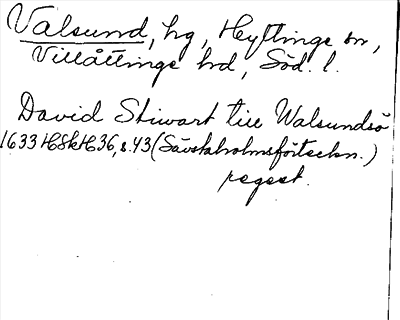 Valsund, hg, Hyltinge sn,
Villåttinge hd, Söd. l.
David Stiwart till Walsundsö
1633 HSkH36, s.43 (Sävstaholmsförteckn.)
regest.